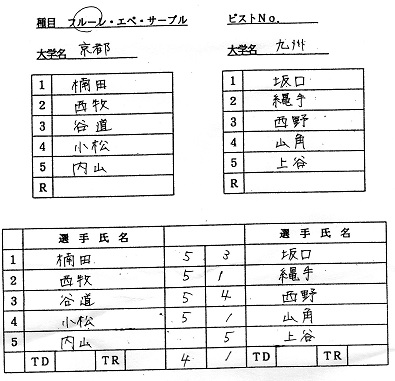 種目 フルーレ・エペ・サーブル ピストNo.
大学名 京都 大学名 九州
1 楠田 1 坂口
2 西牧 2 縄手
3 谷道 3 西野
4 小松 4 山角
5 内山 5 上谷
R R
選手氏名 選手氏名
1 楠田 5 3 坂口
2 西牧 5 1 縄手
3 谷道 5 4 西野
4 小松 5 1 山角
5 内山 5 上谷
TD TR 4 1 TD TR